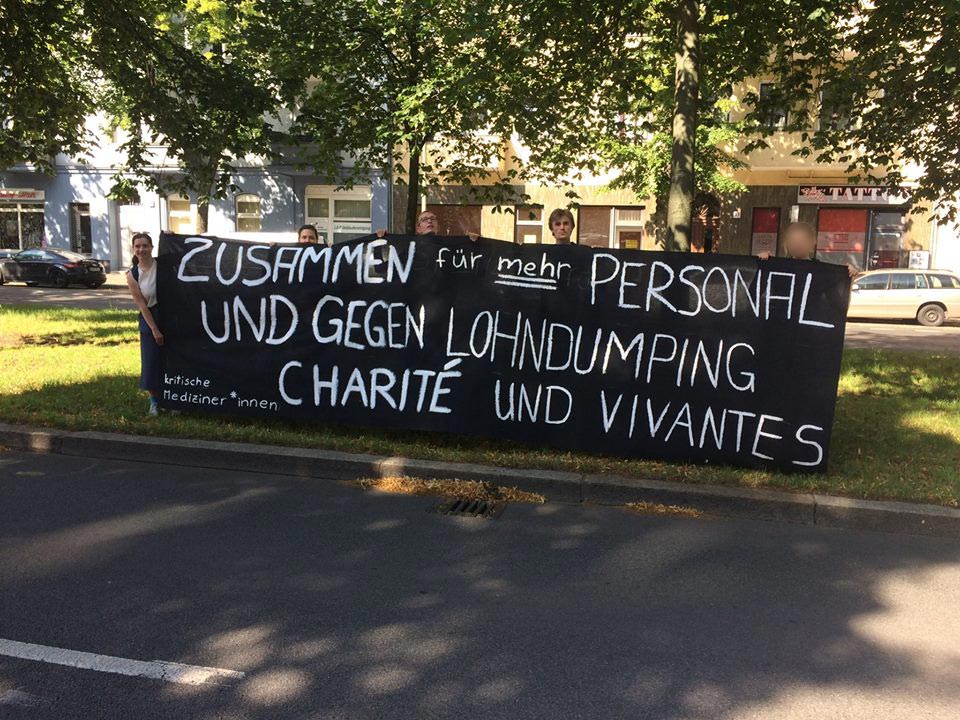 ZUSAMMEN für mehr PERSONAL
UND GEGEN LOHNDUMPING
CHARITÉ UND VIVANTES
kritische
Mediziner*innen